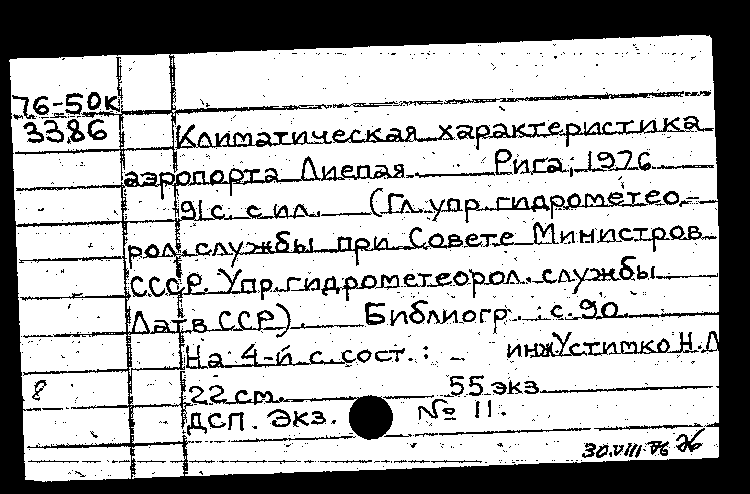 76-50к
3386
Климатическая характеристика
аэропорта Лиепая. Рига, 1976
91с. с ил. (Гл. упр. гидрометео-
рол. службы при Совете Министров
СССР. Упр. гидрометеорол. службы
Латв ССР). Библиогр.: с. 90.
На 4-й с. сост.: инж Устимко Н. Л
8 22 см. 55 экз.
ДСП. Экз. № 11.
30.VIII 76